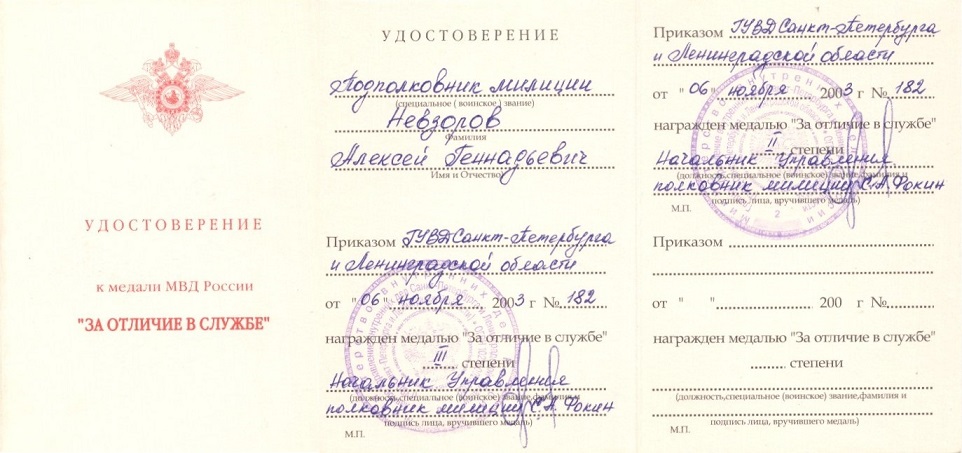 УДОСТОВЕРЕНИЕ
к медали МВД России
"ЗА ОТЛИЧИЕ В СЛУЖБЕ"
УДОСТОВЕРЕНИЕ
Подполковник милиции
(специальное ( воинское ) звание)
Невзоров
Фамилия
Алексей Геннадьевич
Имя и Отчество)
Приказом ГУВД Санкт-Петербурга
и Ленинградской области
от "06" ноября 2003 г № 182
награжден медалью "За отличие в службе"
III степени
Начальник Управления
(должность,специальное (воинское) звание,фамилия и
полковник милиции С.А. Фокин
подпись лица, вручившего медаль)
М.П.
Приказом ГУВД Санкт-Петербурга
и Ленинградской области
от "06" ноября 2003 г № 182
награжден медалью "За отличие в службе"
II степени
Начальник Управления
(должность,специальное (воинское) звание,фамилия и
полковник милиции С.А. Фокин
подпись лица, вручившего медаль)
М.П.
Приказом
от " " 200 г №
награжден медалью "За отличие в службе"
степени
(должность,специальное (воинское) звание,фамилия и
подпись лица, вручившего медаль)
М.П.